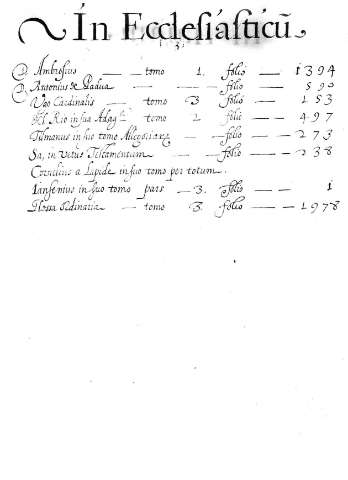 In Ecclesiasticũ
.3.
Ambrosius — tomo 1. folio — 1394
Antonius de Padua — folio — 590
Ugo Cardinalis — tomo 3 folio — 153
Del Rio in sua Adag. tomo 2 folio — 497
Tilmanus in suo tomo Allegoriarũ — folio — 273
Sa, in Vetus Testamentum — folio — 238
Cornelius a Lapide in suo tomo per totum.
Iansenius in suo tomo pars — 3. folio — 1
Glossa Ordinaria — tomo 3. folio — 1978